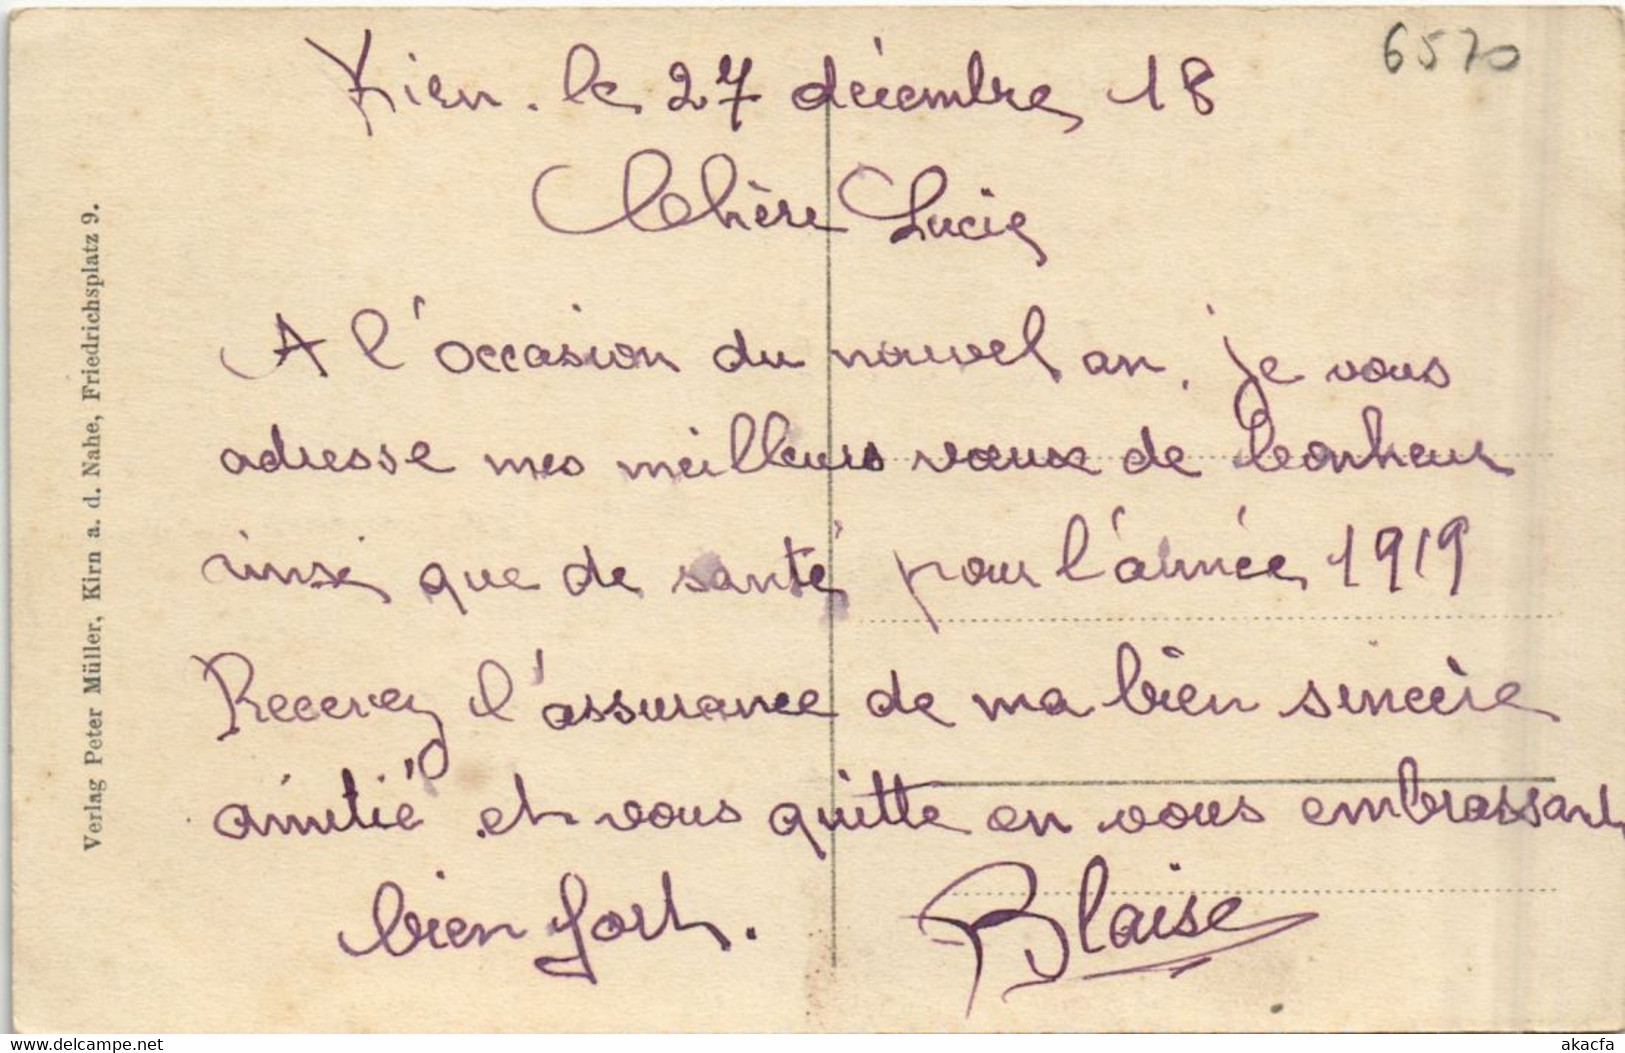 6570
Kirn. le 27 décembre 18
Chère Lucie
A l'occasion du nouvel an, je vous
adresse mes meilleurs vœux de bonheur
ainsi que de santé pour l'année 1919
Recevez l'assurance de ma bien sincère
amitié et vous quitte en vous embrassant
bien fort.
Blaise
Verlag Peter Müller, Kirn a. d. Nahe, Friedrichsplatz 9.
delcampe.net
akacfa